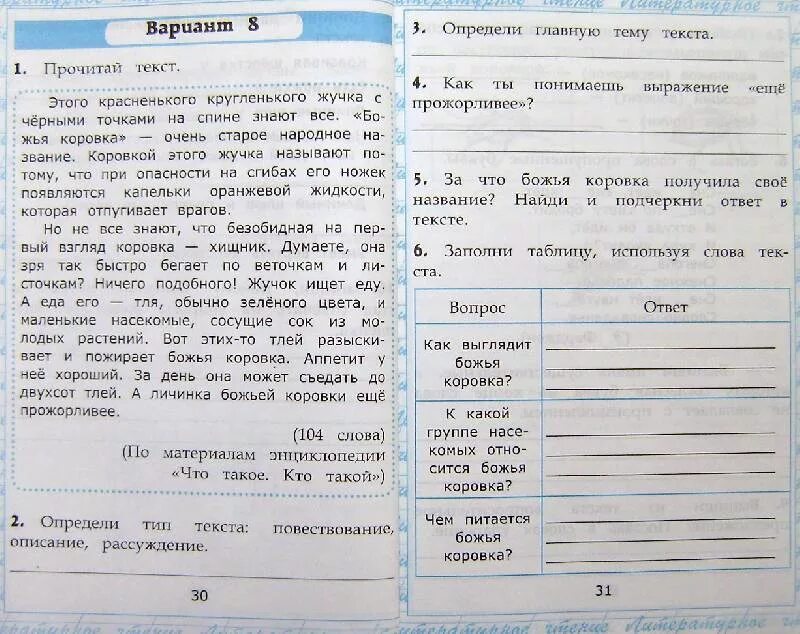 Вариант 8
1. Прочитай текст.
Этого красненького кругленького жучка с
чёрными точками на спине знают все. «Бо-
жья коровка» — очень старое народное на-
звание. Коровкой этого жучка называют по-
тому, что при опасности на сгибах его ножек
появляются капельки оранжевой жидкости,
которая отпугивает врагов.
Но не все знают, что безобидная на пер-
вый взгляд коровка — хищник. Думаете, она
зря так быстро бегает по веточкам и ли-
сточкам? Ничего подобного! Жучок ищет еду.
А еда его — тля, обычно зелёного цвета, и
маленькие насекомые, сосущие сок из мо-
лодых растений. Вот этих-то тлей разыски-
вает и пожирает божья коровка. Аппетит у
неё хороший. За день она может съедать до
двухсот тлей. А личинка божьей коровки ещё
прожорливее.
(104 слова)
(По материалам энциклопедии
«Что такое. Кто такой»)
2. Определи тип текста: повествование,
описание, рассуждение.
30
Литературное чтение
3. Определи главную тему текста.
4. Как ты понимаешь выражение «ещё
прожорливее»?
5. За что божья коровка получила своё
название? Найди и подчеркни ответ в
тексте.
6. Заполни таблицу, используя слова тек-
ста.
Вопрос
Ответ
Как выглядит
божья
коровка?
К какой
группе насе-
комых отно-
сится божья
коровка?
Чем питается
божья
коровка?
31